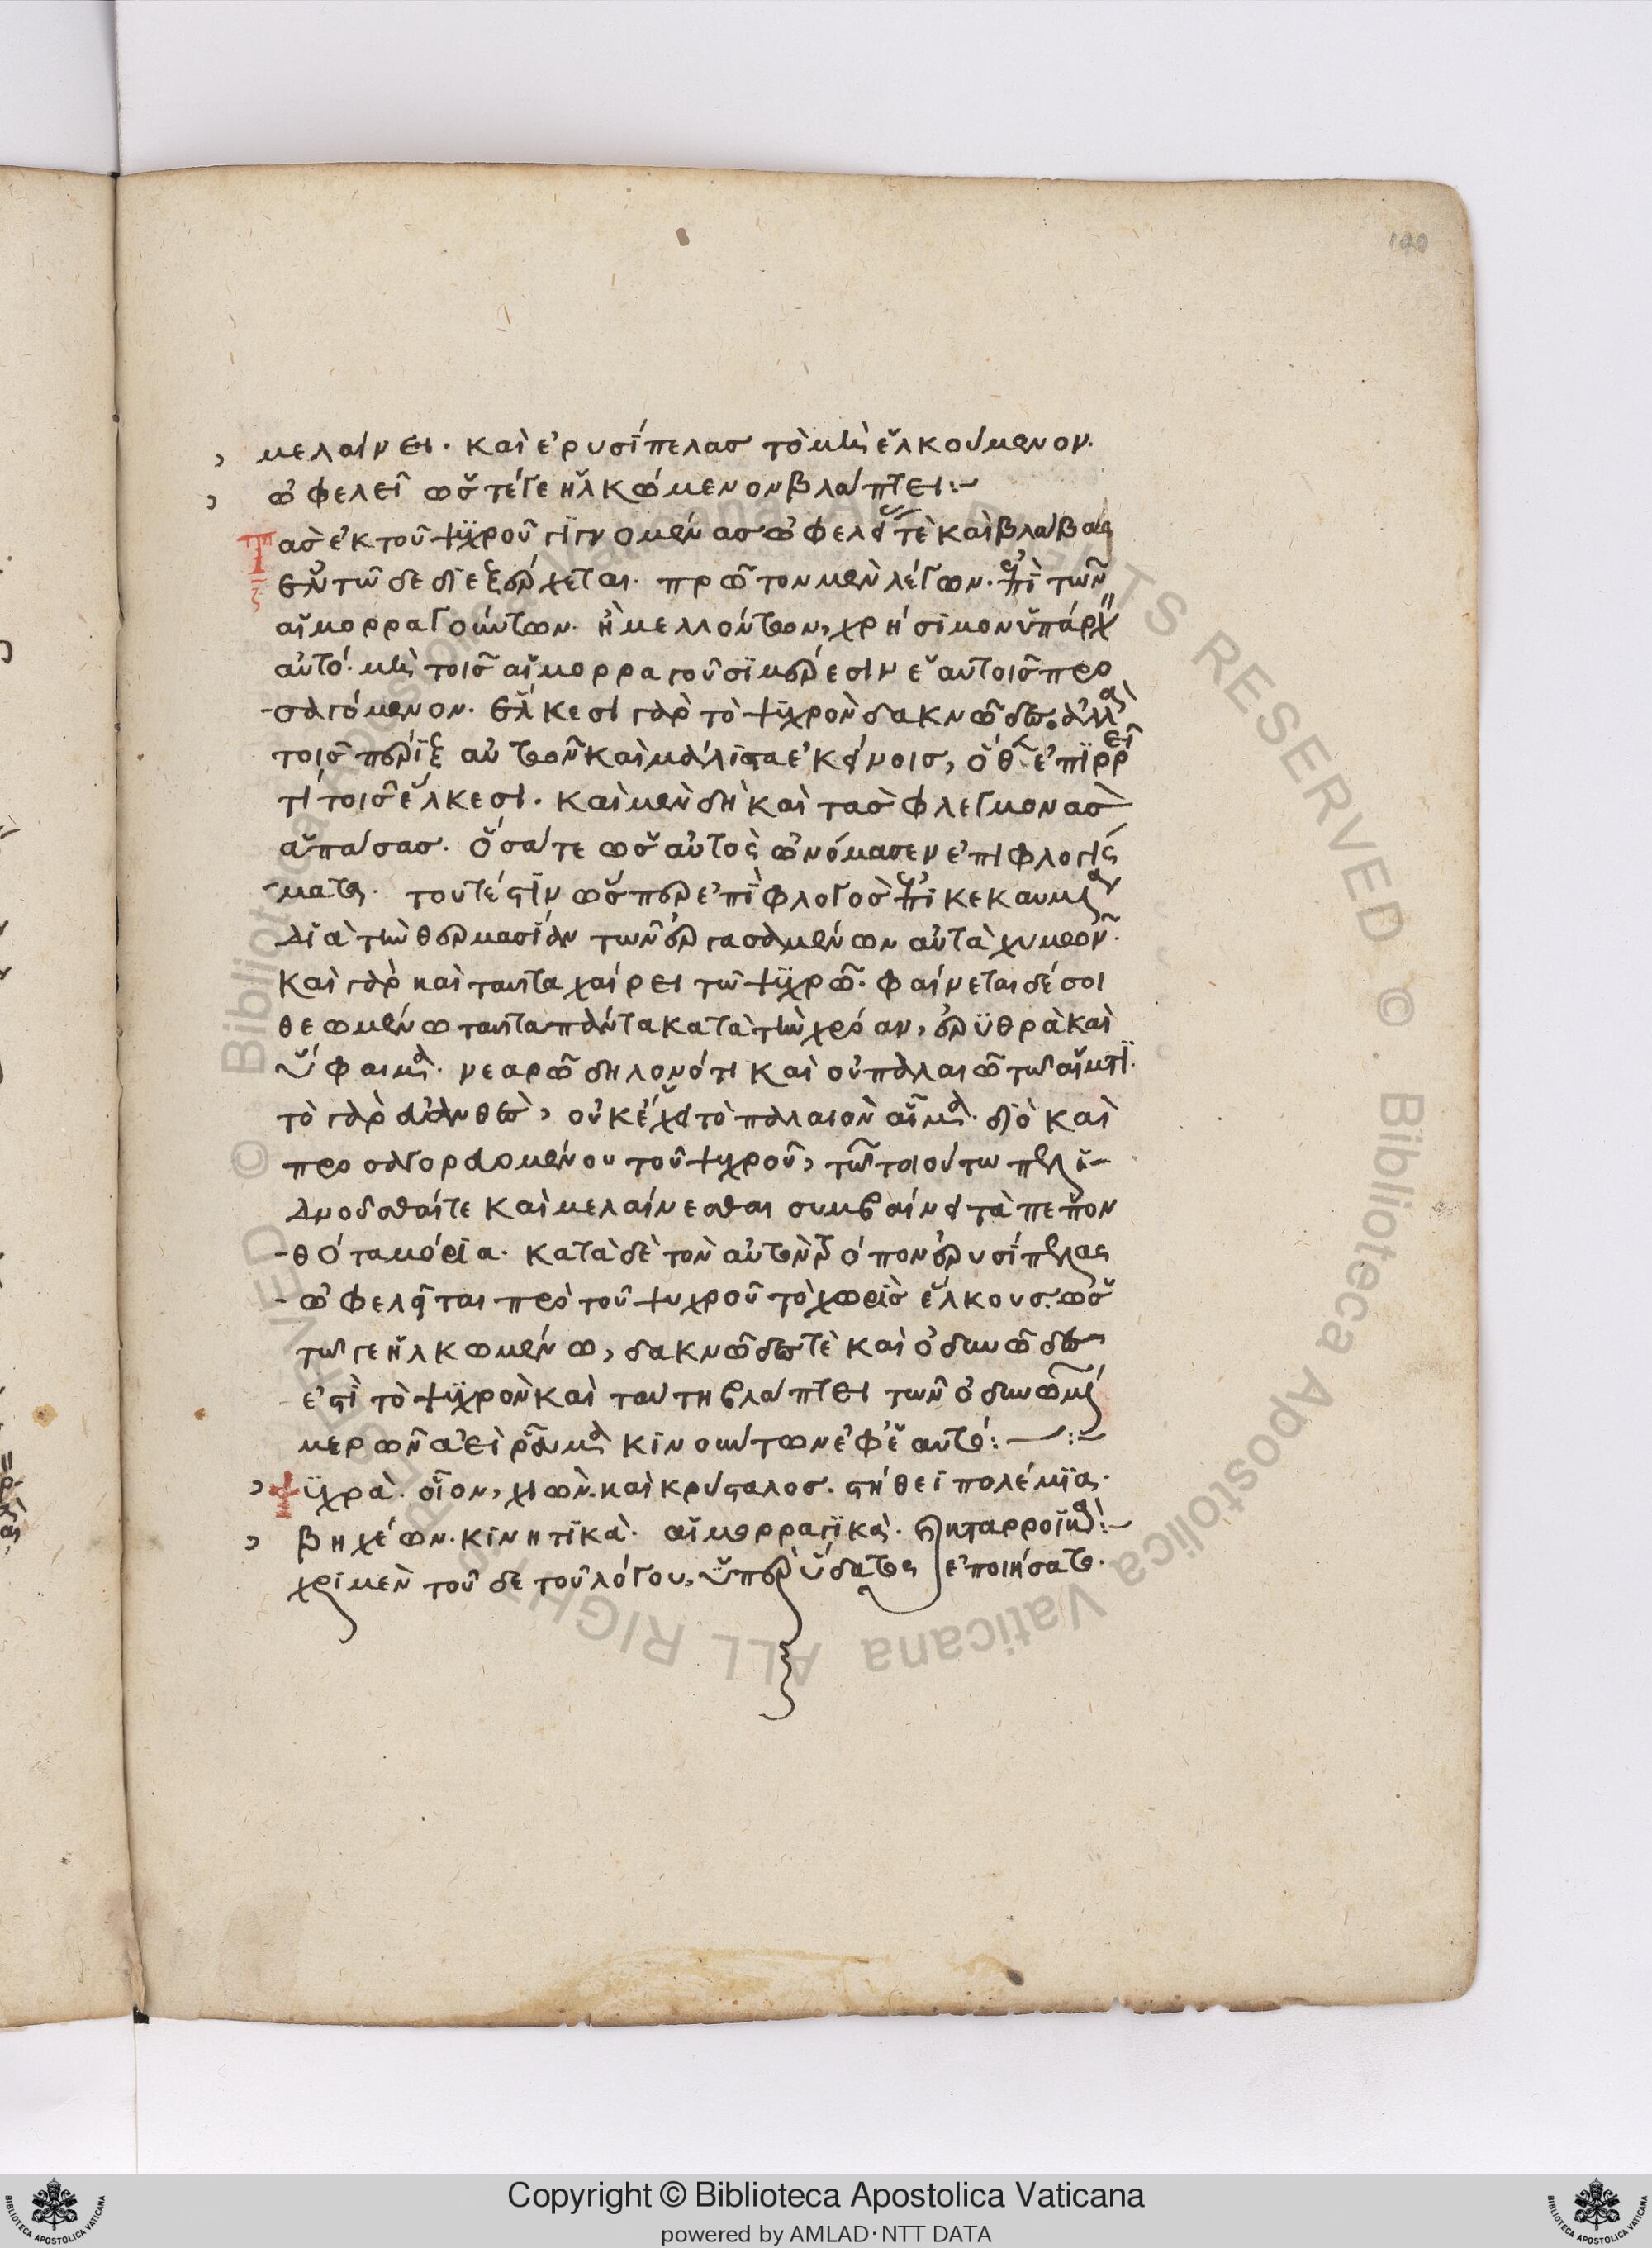 190
μελαίνει· καὶ ἐρυσίπελας τὸ μὴ ἑλκούμενον·
ὠφελεῖ ὥς τέ γε ἡλκώμενον βλάπτει:~
Τὰς ἐκ τοῦ ψυχροῦ γιγνομένας ὠφελείας τὲ καὶ βλάβας
ἐν τῶ δε διεξέρχεται. πρῶτον μὲν λέγων. ἐπὶ τῶν
αἱμορραγούντων. ἢ μελλόντων, χρήσιμον ὑπάρχειν
αὐτό. μὴ τοῖς αἱμορραγοῦσι μέρεσιν ἑαυτοῖς προ
-σαγόμενον. ἕλκεσι γὰρ τὸ ψυχρὸν δακνῶδες. ἀλλὰ
τοῖς πέριξ αὐτῶν καὶ μάλιστα ἐκείνοις, ὅθεν ἐπιρρεῖ
τί τοῖς ἕλκεσι. καὶ μὲν δὴ καὶ τὰς φλεγμονὰς
ἁπάσας. ὅσα τε ὡς αὐτὸς ὠνόμασεν ἐπιφλογίς
-ματα. τουτέστιν ὥσπερ ἐπὶ φλογὸς ἐπικεκαυμένα
διὰ τὴν θερμασίαν τῶν ἐργασαμένων αὐτὰ χυμῶν.
καὶ γὰρ καὶ ταῦτα χαίρει τῶ ψυχρῶ. φαίνεται δέ σοι
θεωμένω ταῦτα πάντα κατὰ τὴν χρόαν, ἐρυθρὰ καὶ
ὕφαιμα. νεαρῶ δηλονότι καὶ οὐ παλαιῶ τῶ αἵματι.
τὸ γὰρ ἀανθὲς, οὐκ ἔχει τὸ παλαιὸν αἷμα. διὸ καὶ
προσαγορευομένου τοῦ ψυχροῦ, τῶ τοιούτω πελι-
δνοῦσθαί τε καὶ μελαίνεσθαι συμβαίνει τὰ πεπον
-θότα μόρια. κατὰ δὲ τὸν αὐτὸν τρόπον ἐρυσίπελας
-ὠφελεῖται πρὸ τοῦ ψυχροῦ τὸ χωρὶς ἕλκους. ὡς
τῶ γε ἡλκωμένω, δακνῶδες τὲ καὶ ὀδυνῶδες
ἐστὶ τὸ ψυχρὸν καὶ ταύτη βλάπτει τῶν ὀδυνωμένων
μερῶν ἀεὶ ῥεῦμα κινούντων ἐφ' ἑαυτό: —:~
Ψυχρὰ. οἷον, χιὼν. καὶ κρύσταλος. στήθεϊ πολέμια.
βηχέων. κινητικὰ. αἱμορραγικὰ. καταρροϊκὰ:~
χρὶ μὲν τοῦ δε τοῦ λόγου, ὑπὲρ ὕδατος ἐποιήσατο.
Copyright © Biblioteca Apostolica Vaticana
powered by AMLAD·NTT DATA